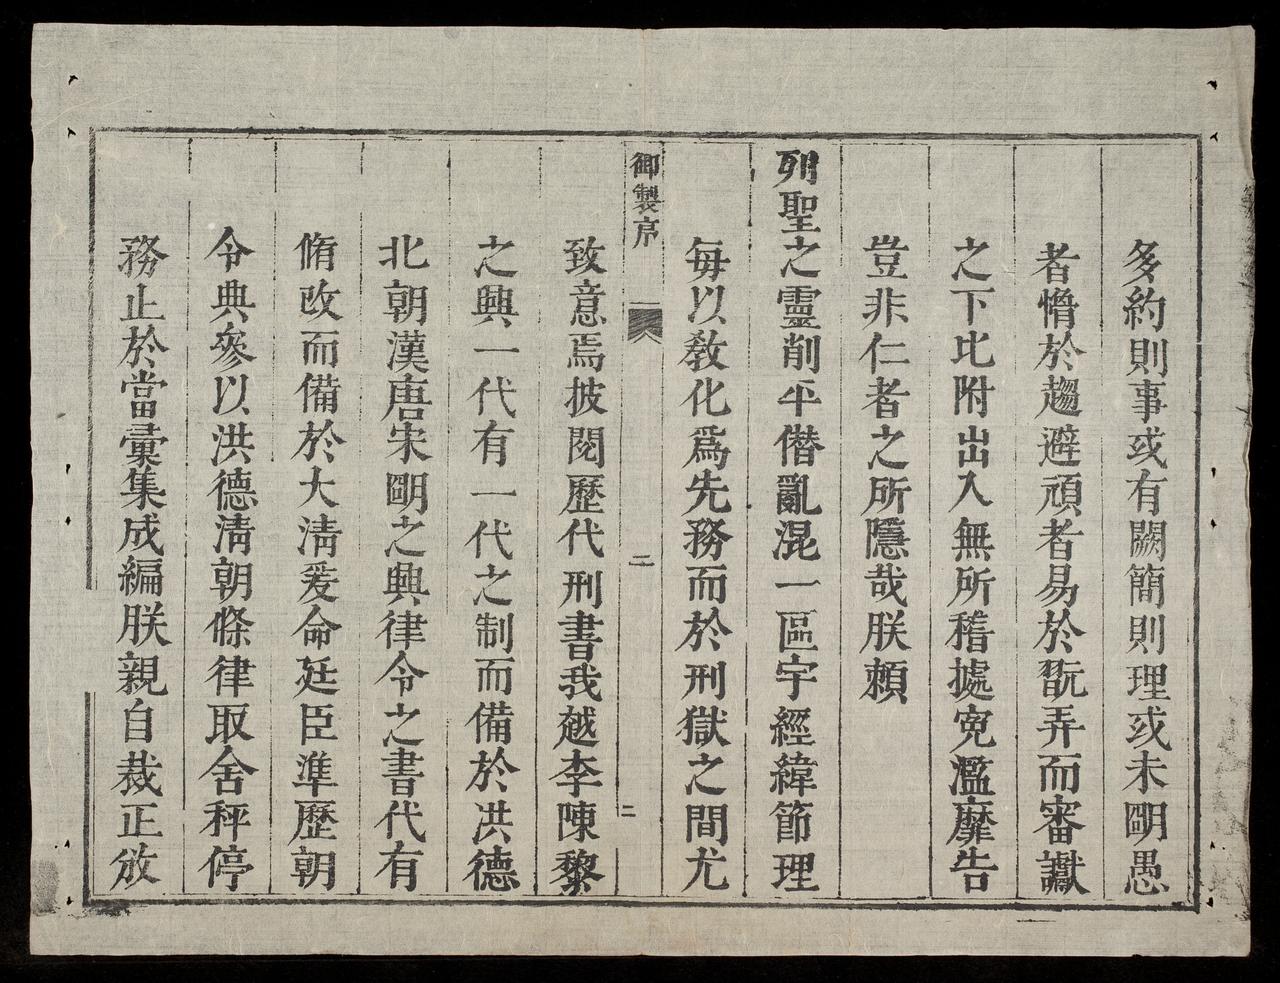 多約則事或有闕簡則理或未明愚
者懵於趨避頑者易於翫弄而審讞
之下比附出入無所稽據寃濫靡告
豈非仁者之所隱哉朕賴
列聖之靈削平僭亂混一區宇經緯節理
每以敎化爲先務而於刑獄之間尤
御製序
二
二
致意焉披閱歷代刑書我越李陳黎
之興一代有一代之制而備於洪德
北朝漢唐宋明之興律令之書代有
脩改而備於大淸爰命廷臣準歷朝
令典參以洪德淸朝條律取舍秤停
務止於當彙集成編朕親自裁正放